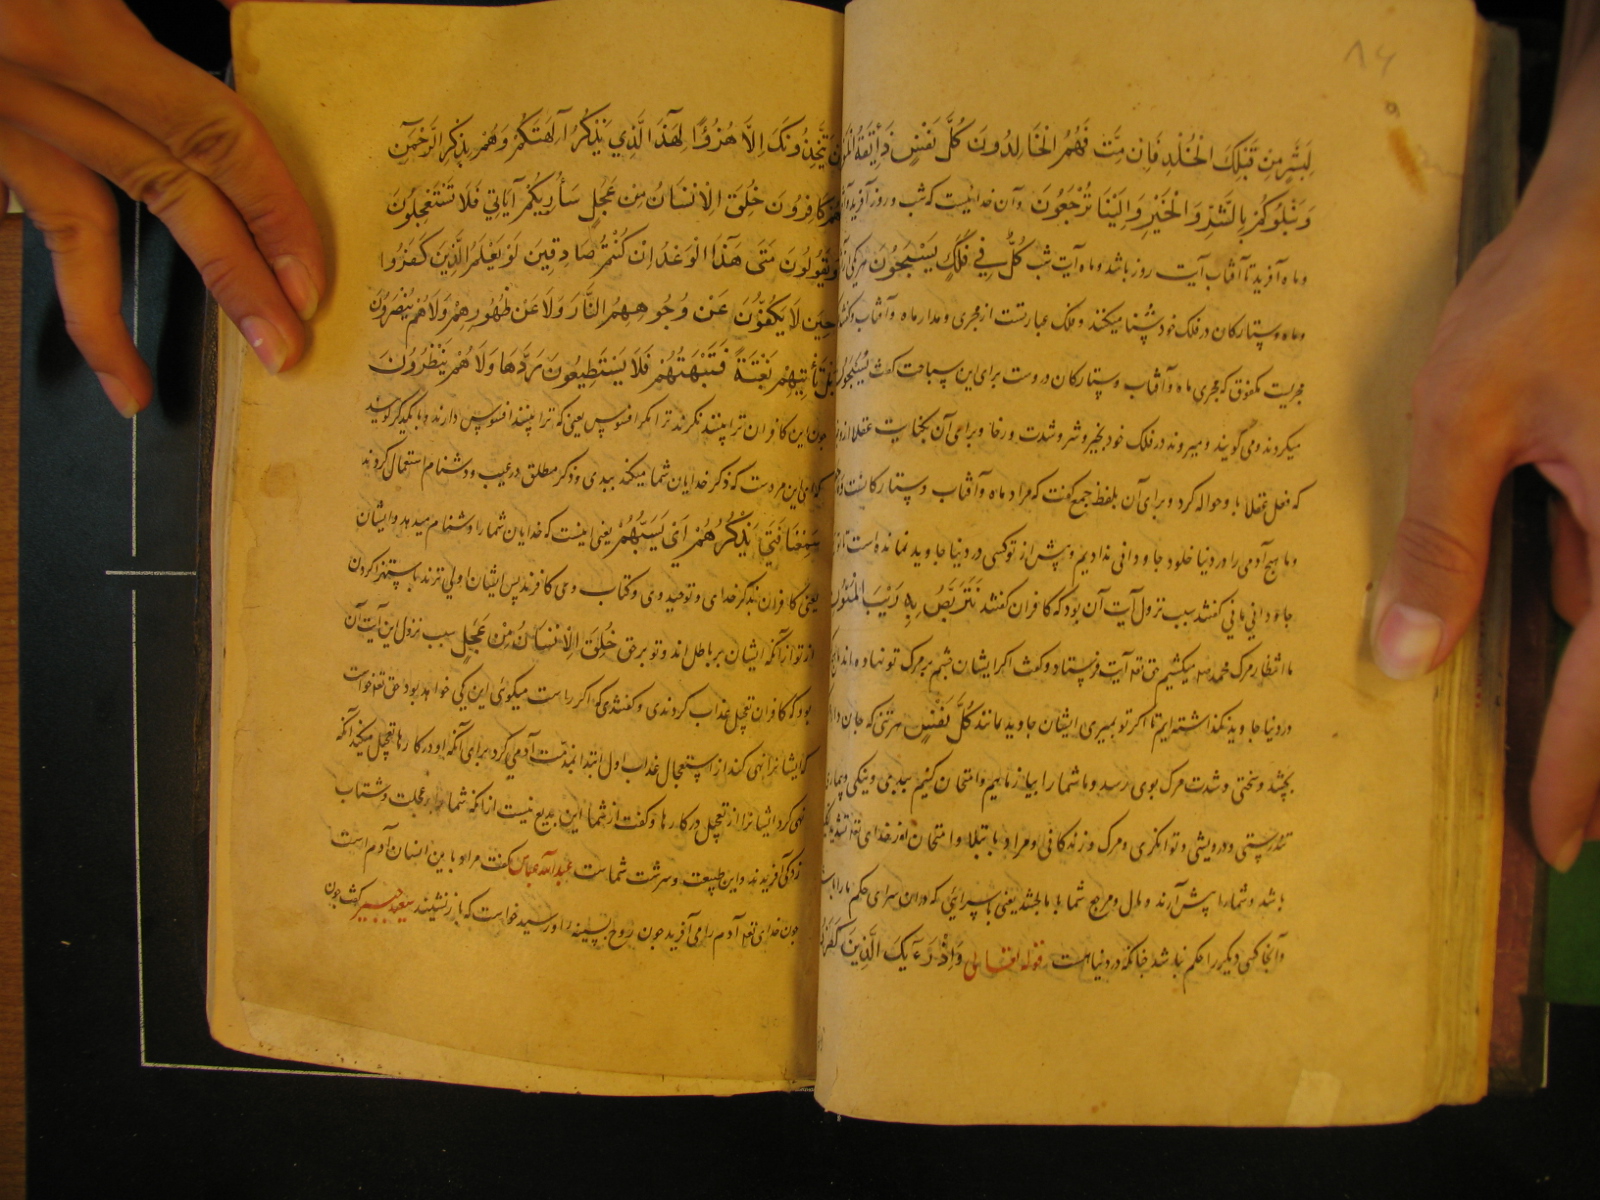 ۸۴
لِبَشَرٍ مِنْ قَبْلِكَ الْخُلْدَ فَاِنْ مِتَّ فَهُمُ الْخَالِدُونَ كُلُّ نَفْسٍ ذَائِقَةُ الْمَوْتِ
وَنَبْلُوكُمْ بِالشَّرِّ وَالْخَيْرِ وَاِلَيْنَا تُرْجَعُونَ وآن خدائیست که شب و روز آفرید
و ماه آفرید تا آفتاب آیت روز باشد و ماه آیت شب كُلٌّ فِي فَلَكٍ يَسْبَحُونَ هر یکی
و ماه و ستارکان در فلک خود شنا میکنند و فلک عبارتست از مجری و مدار ماه و آفتاب
مجری ماه و آفتاب و ستارکان دروست برای این سباحت کفت
میکردند و می کویند و میروند در فلک خود بخیر و شر و شدت و رخا و برای آن کنایت عقلا
که فعل عقلا با و حواله کرد و برای آن بلفظ جمع کفت که مراد ماه و آفتاب و ستارکانست
و ما هیچ آدمی را در دنیا خلود جاودانی ندادیم و پیش از تو کسی در دنیا جاوید نمانده است
جاودانی مانی کفتند سبب نزول آیت آن بود که کافران کفتند نَتَرَبَّصُ بِهِ رَيْبَ الْمَنُونِ
ما انتظار مرک محمد میکشیم حق تعه آیت فرستاد و کفت اکر ایشان چشم بر مرک تو نهاده اند
در دنیا جاوید نکذاشته ایم تا اکر تو بمیری ایشان جاوید بمانند كُلُّ نَفْسٍ هر تنی که جان دارد
بچشد و سختی و شدت مرک بوی رسد و ما شما را بیازماییم و امتحان کنیم ببدی و نیکی و بیماری
تندرستی و درویشی و توانکری و مرک و زندکانی و مراد بابتلا و امتحان از خدای تعه
باشد و شما را پیش آرند و مآل و مرجع شما با ما باشد یعنی با سرائی که در آن سرای حکم ما را باشد
و آنجا کسی دیکر را حکم نباشد چنانکه در دنیاست قوله تعالی وَاِذَا رَءَيكَ الَّذِينَ كَفَرُوا
يَتَّخِذُونَكَ اِلَّا هُزُوًا اَهَذَا الَّذِي يَذْكُرُ آلِهَتَكُمْ وَهُمْ بِذِكْرِ الرَّحْمٰنِ
هُمْ كَافِرُونَ خُلِقَ الْاِنْسَانُ مِنْ عَجَلٍ سَاُرِيكُمْ آيَاتِي فَلَا تَسْتَعْجِلُونَ
وَيَقُولُونَ مَتَى هَذَا الْوَعْدُ اِنْ كُنْتُمْ صَادِقِينَ لَوْ يَعْلَمُ الَّذِينَ كَفَرُوا
حِينَ لَا يَكُفُّونَ عَنْ وُجُوهِهِمُ النَّارَ وَلَا عَنْ ظُهُورِهِمْ وَلَا هُمْ يُنْصَرُونَ
بَلْ تَأْتِيهِمْ بَغْتَةً فَتَبْهَتُهُمْ فَلَا يَسْتَطِيعُونَ رَدَّهَا وَلَا هُمْ يُنْظَرُونَ
چون این کافران ترا بینند نکرند ترا مکر افسوس یعنی که ترا بینند افسوس دارند و با یکدیکر کویند
که ای این مردست که ذکر خدایان شما میکند ببدی و ذکر مطلق در عیب و دشنام استعمال کردند
سَمِعْنَا فَتًى يَذْكُرُهُمْ اَيْ يَسُبُّهُمْ یعنی اینست که خدایان شما را دشنام میدهد و ایشان
یعنی کافران بذکر خدای و توحید وی و کتاب و وحی کافرند پس ایشان اولی ترند باستهزا کردن
از تو از آنکه ایشان بر باطل اند و تو بر حق خُلِقَ الْاِنْسَانُ مِنْ عَجَلٍ سبب نزول این آیت آن
بود که کافران تعجیل عذاب کردندی و کفتندی که اکر راست میکوئی این کی خواهد بود حق تعه خواست
که ایشانرا نهی کند از استعجال عذاب اول ابتدا بمذمت آدمی کرد برای آنکه او در کارها تعجیل میکند آنکه
نهی کرد ایشانرا از تعجیل در کارها و کفت از شما این بدیع نیست از آنکه شما بر عجلت و شتاب
زدکی آفریده اند و این طبیعت و سرشت شماست عبد الله عباس کفت مراد باین انسان آدم است
چون خدای تعه آدم را می آفرید چون روح بسینه او رسید خواست که باز نشیند سعید جبیر کفت چون